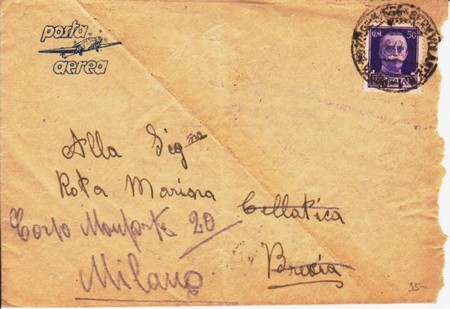 posta
aerea
CENT. 50
Alla Sig.na
Rota Marisa
Cellatica
Corso Monforte 20
Brescia
Milano
35-